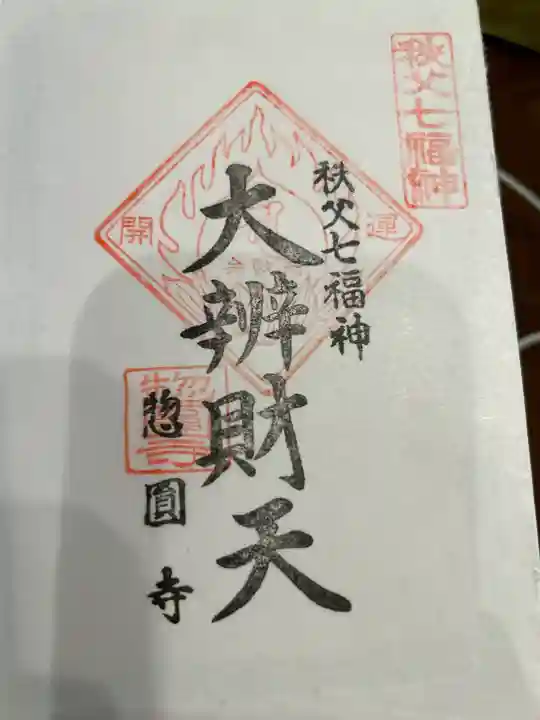 秩父七福神
秩父七福神
開運
大辨財天
惣圓寺